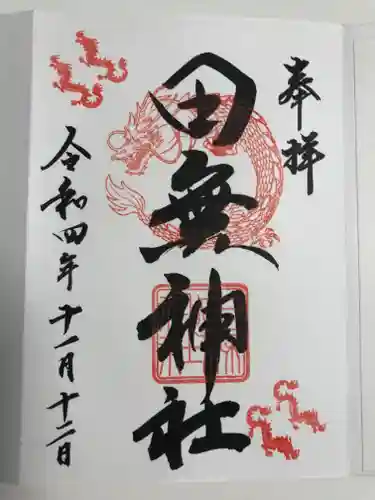 奉拝
田無神社
令和四年十一月十二日